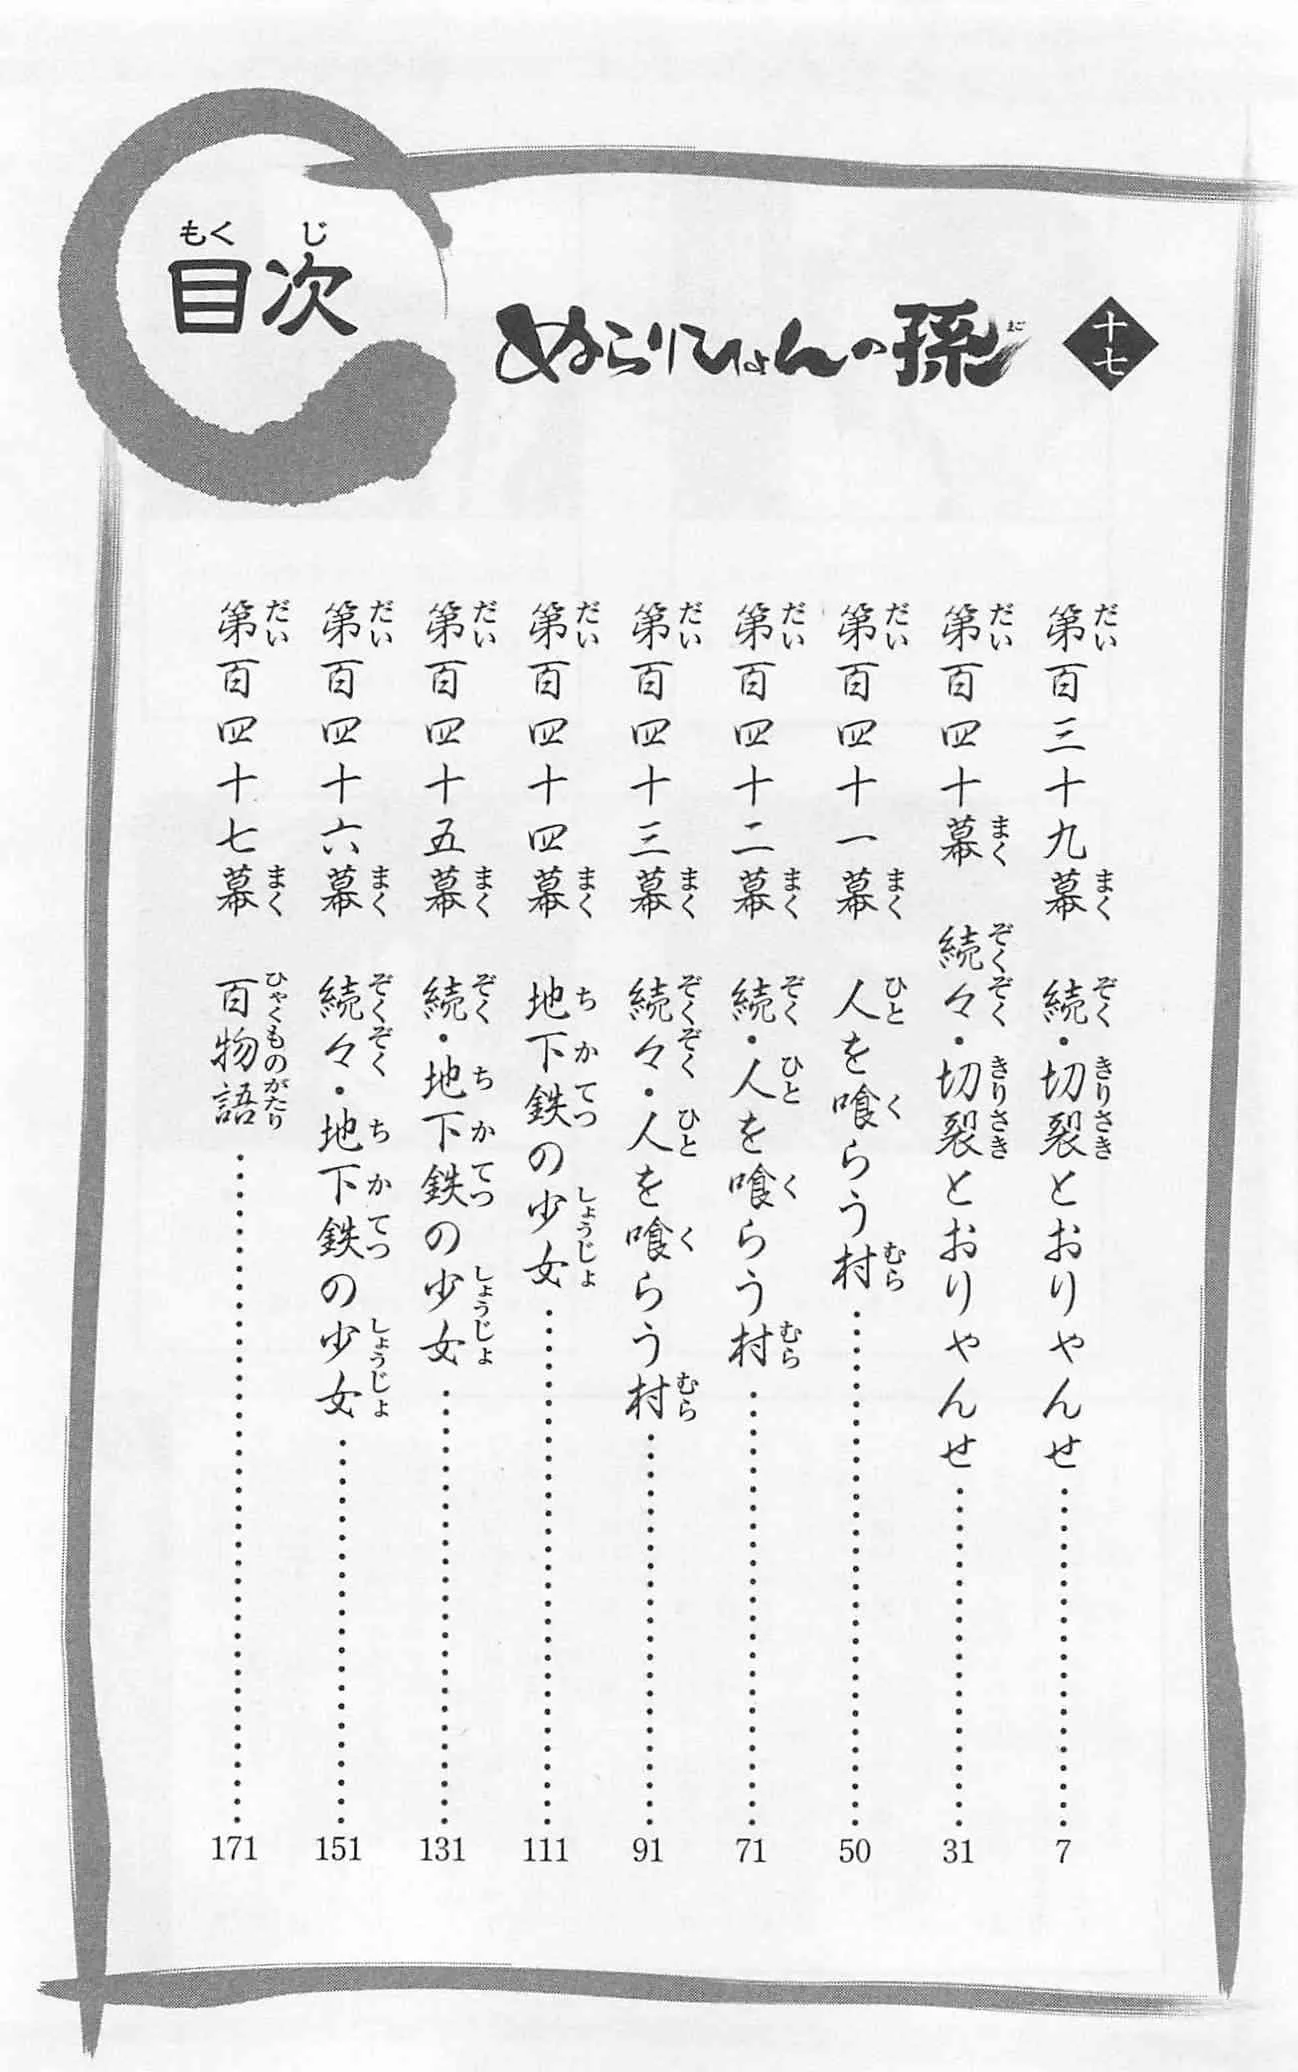 目次
ぬらりひょんの孫
十七
第百三十九幕 続・切裂とおりゃんせ………7
第百四十幕 続々・切裂とおりゃんせ………31
第百四十一幕 人を喰らう村………50
第百四十二幕 続・人を喰らう村………71
第百四十三幕 続々・人を喰らう村………91
第百四十四幕 地下鉄の少女………111
第百四十五幕 続・地下鉄の少女………131
第百四十六幕 続々・地下鉄の少女………151
第百四十七幕 百物語………171